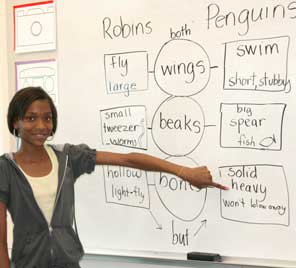 Robins
both
Penguins
fly
large
wings
swim
short, stubby
small
tweezer
worms
beaks
big
spear
fish
hollow
light-fly
bones
solid
heavy
won't blow away
but